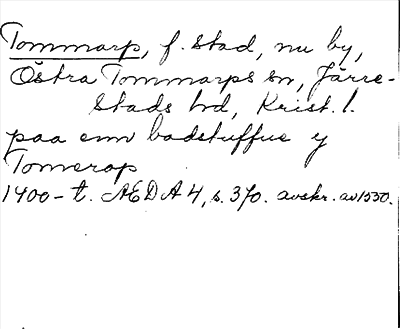 Tommarp, f. stad, nu by,
Östra Tommarps sn, Järre-
stads hd, Krist. l.
paa enn badstuffue y
Tomerap
1400-t. AEDA 4, s. 370. avskr. av 1550.